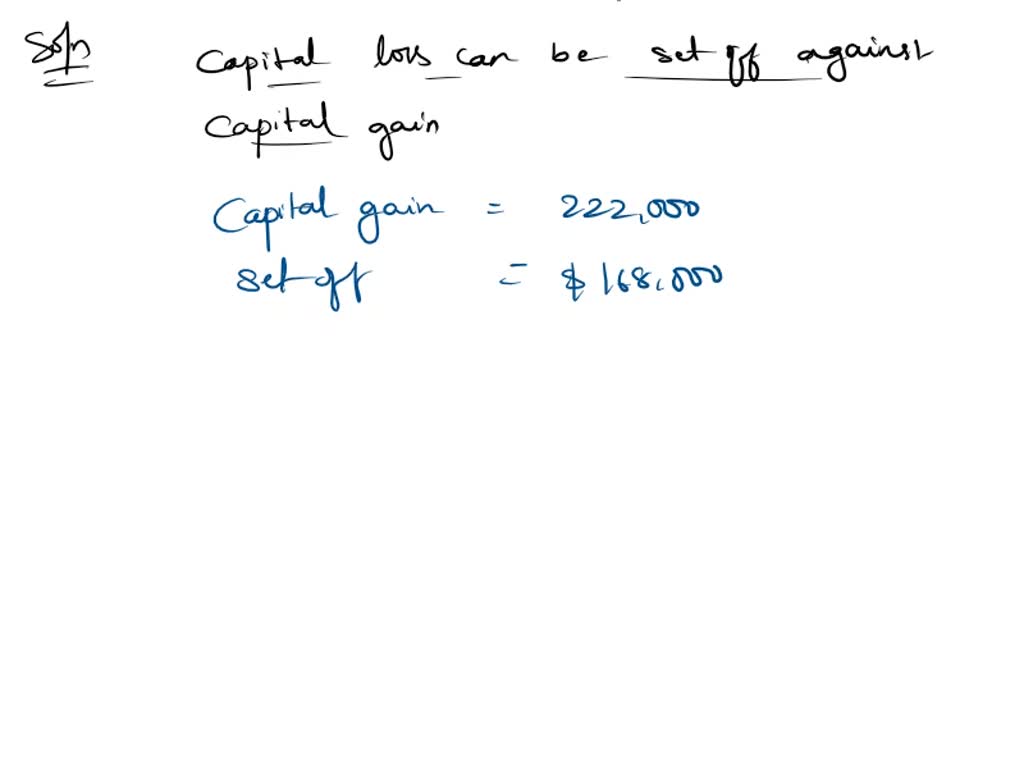 Soln Capital loss can be set off against
Capital gain
Capital gain = 222,000
set off = $168,000